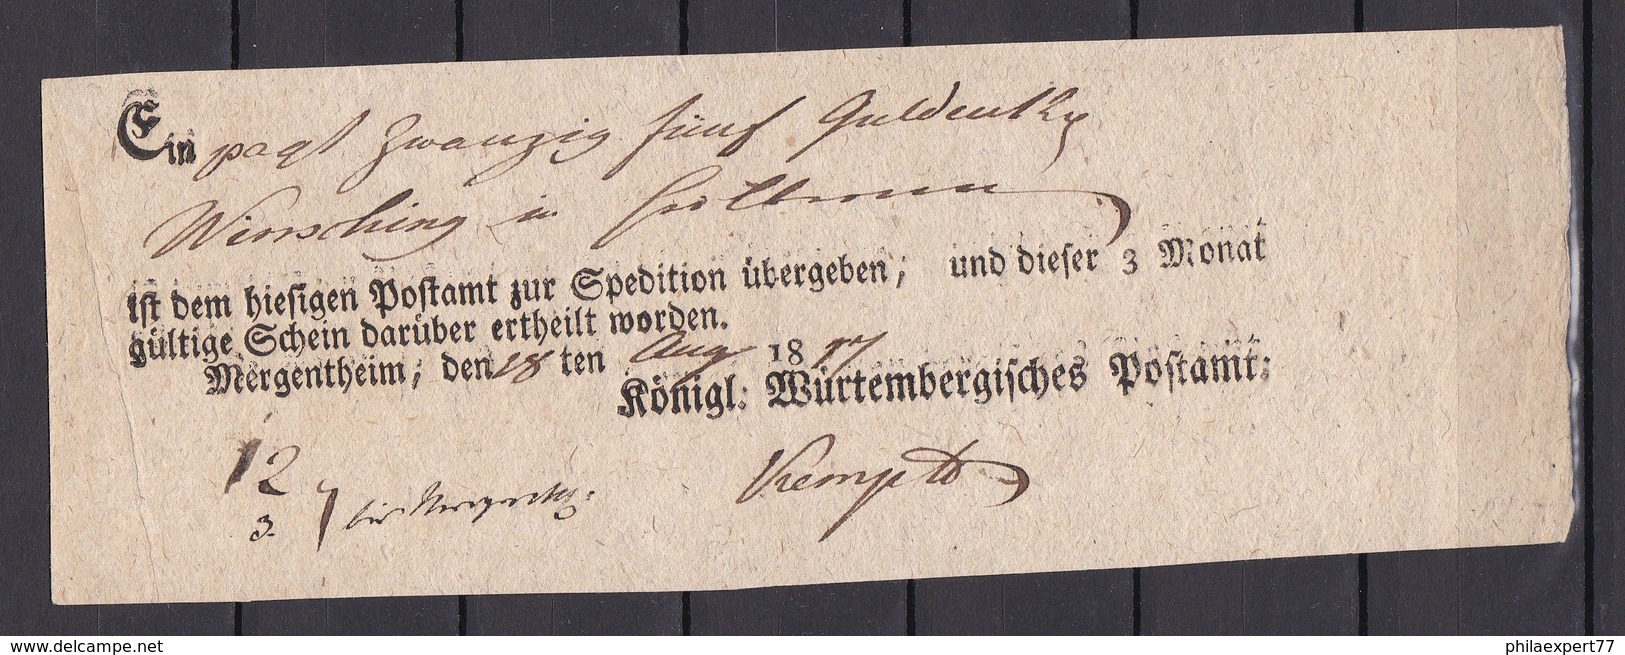 Ein paqt Zwanzig fünf Gulden
Winsching in
ist dem hiesigen Postamt zur Spedition übergeben, und dieser 3 Monat
gültige Schein darüber ertheilt worden.
Mergentheim, den 18 ten Aug 18 17
Königl: Würtembergisches Postamt:
12
3.
delcampe.net
philaexpert77